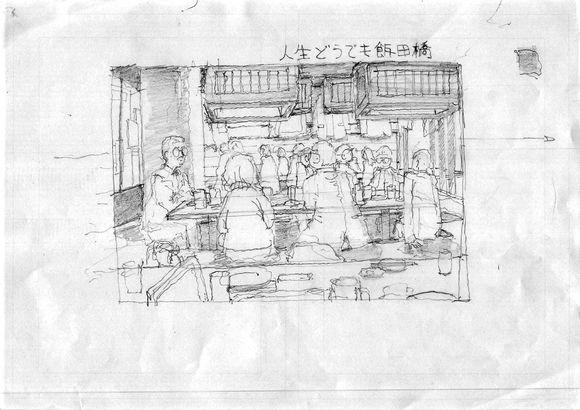 人生どうでも飯田橋